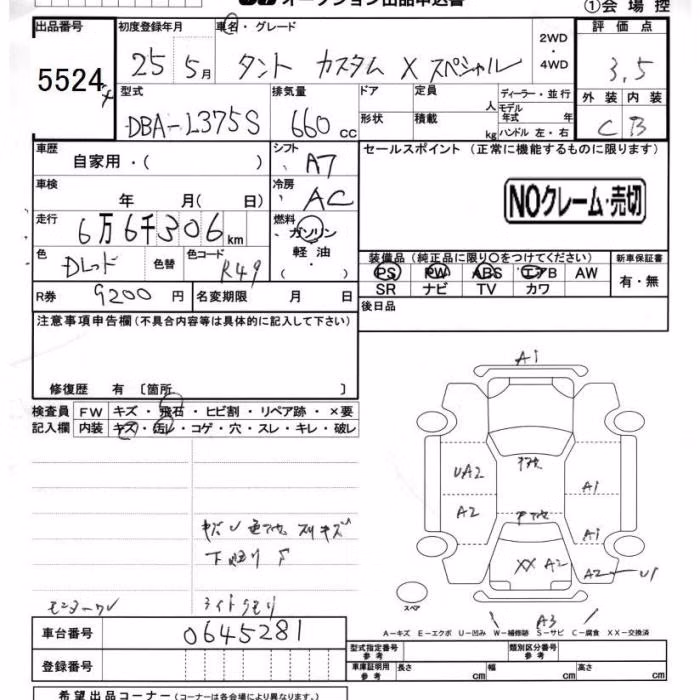 オークション出品申込書
①会場控
出品番号 初度登録年月 車名・グレード 評価点
5524 25 5月 タント カスタム X スペシャル 2WD・4WD 3.5
型式 排気量 ドア 定員 人 ディーラー・並行 外装 内装
DBA-L375S 660cc 形状 積載 kg モデル年式 年式 ハンドル 左・右 C B
車歴 自家用・( ) シフト A7 セールスポイント (正常に機能するものに限ります)
車検 年 月( 日) 冷房 AC
NOクレーム・売切
走行 6万6千306km 燃料 ガソリン・軽油・( )
色 Dレッド 色替 色コード R49
装備品(純正品に限り〇をつけてください) 新車保証書
PS PW ABS エアB AW 有・無
SR ナビ TV カワ
R券 9200円 名変期限 月 日 後日品
注意事項申告欄(不具合内容等は具体的に記入して下さい)
修復歴 有 〔箇所 〕
検査員 FW キズ・飛石・ヒビ割・リペア跡・×要
記入欄 内装 キズ・汚レ・コゲ・穴・スレ・キレ・破レ
A1
UA2 A1
A2 A1
XX A2 A2 U1
スペア
A3
下廻りサ
A-キズ E-エクボ U-凹み W-補修跡 S-サビ C-腐食 XX-交換済
車台番号 0645281
型式指定番号 参考 類別区分番号 参考
登録番号 車庫証明用 参考 長さ cm 幅 cm 高さ cm
希望出品コーナー(コーナーは各会場により異なります。)